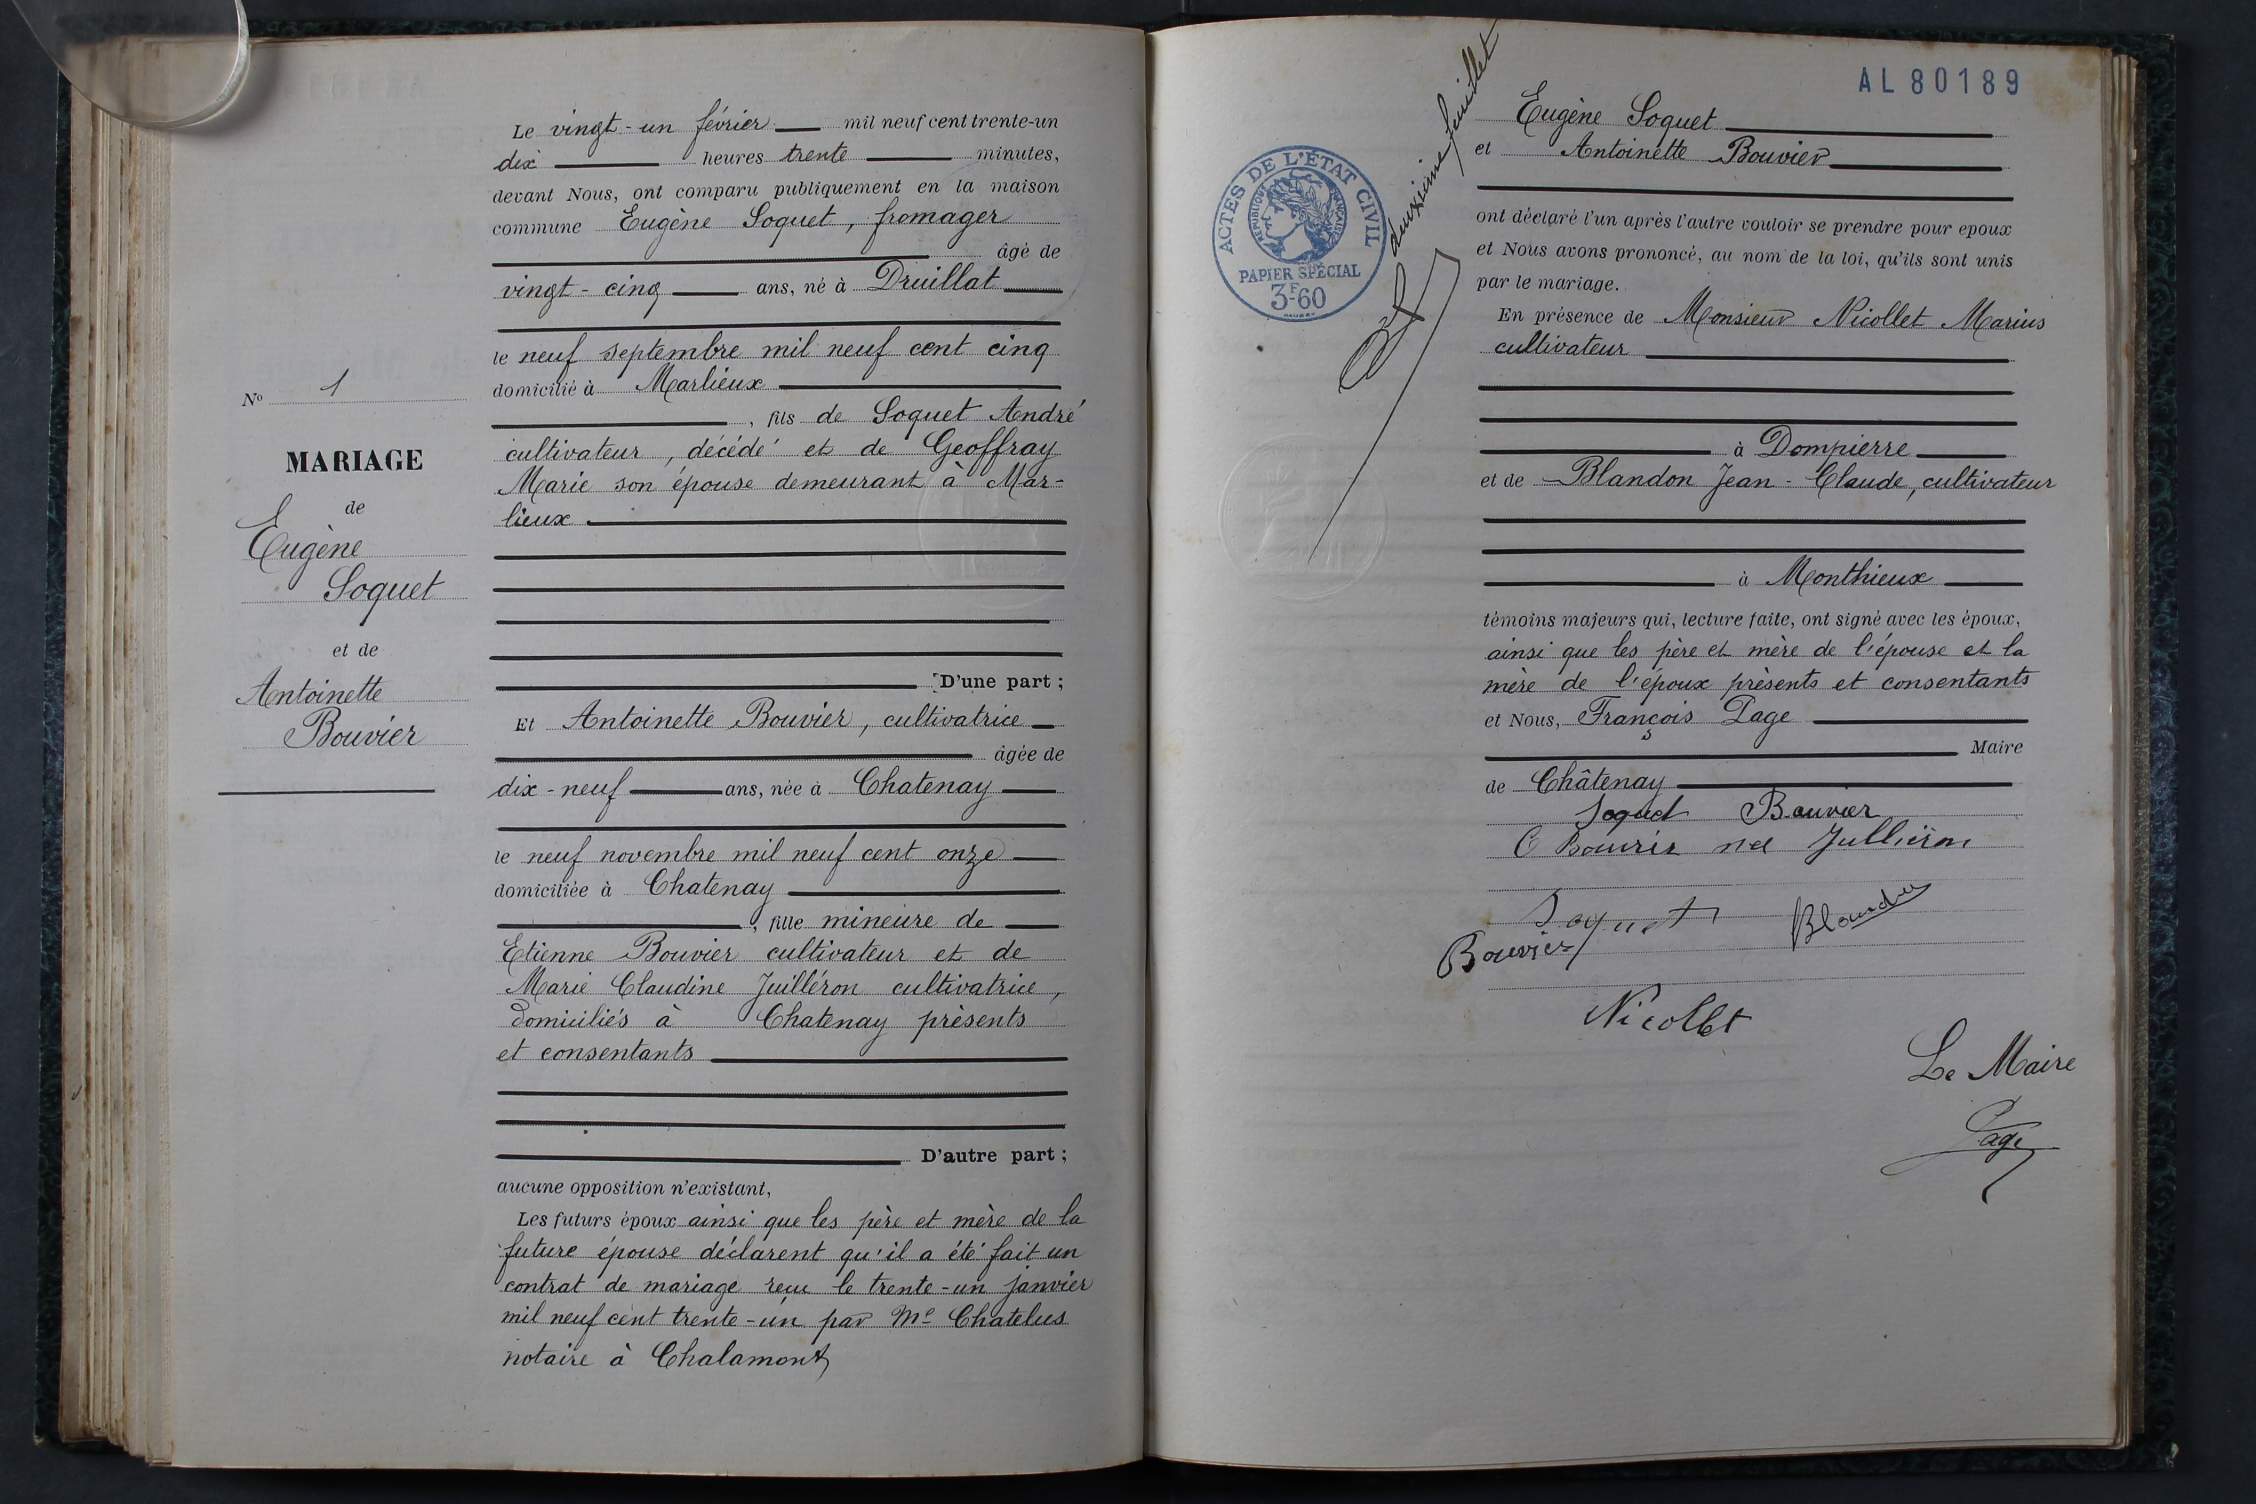 No 1
MARIAGE
de
Eugène
Soquet
et de
Antoinette
Bouvier
Le vingt-un février mil neuf cent trente-un
dix heures trente minutes,
devant Nous, ont comparu publiquement en la maison
commune Eugène Soquet, fromager
âgé de
vingt-cinq ans, né à Druillat
le neuf septembre mil neuf cent cinq
domicilié à Marlieux
, fils de Soquet André
cultivateur, décédé et de Geoffray
Marie son épouse demeurant à Mar-
lieux
D'une part ;
Et Antoinette Bouvier, cultivatrice
âgée de
dix-neuf ans, née à Chatenay
le neuf novembre mil neuf cent onze
domiciliée à Chatenay
, fille mineure de
Etienne Bouvier cultivateur et de
Marie Claudine Juilléron cultivatrice,
domiciliés à Chatenay présents
et consentants
D'autre part ;
aucune opposition n'existant,
Les futurs époux ainsi que les père et mère de la
future épouse déclarent qu'il a été fait un
contrat de mariage reçu le trente-un janvier
mil neuf cent trente-un par Me Chatelus
notaire à Chalamont
AL 80189
deuxième feuillet
ACTES DE L'ÉTAT CIVIL
RÉPUBLIQUE FRANÇAISE
PAPIER SPÉCIAL
3F-60
Eugène Soquet
et Antoinette Bouvier
ont déclaré l'un après l'autre vouloir se prendre pour epoux
et Nous avons prononcé, au nom de la loi, qu'ils sont unis
par le mariage.
En présence de Monsieur Nicollet Marius
cultivateur
à Dompierre
et de Blandon Jean-Claude, cultivateur
à Monthieux
témoins majeurs qui, lecture faite, ont signé avec les époux,
ainsi que les père et mère de l'épouse et la
mère de l'époux présents et consentants
et Nous, François Page
Maire
de Châtenay
Soquet Bouvier
C Bouvier née Jullieron
Soquet Blandon
Bouvier
Nicollet
Le Maire
Page